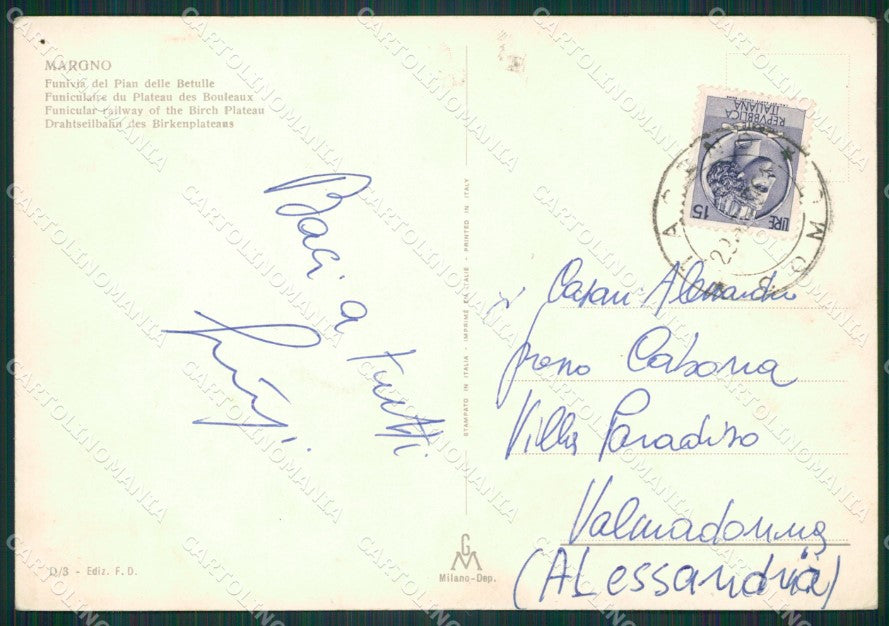 MARGNO
Funivia del Pian delle Betulle
Funiculaire du Plateau des Bouleaux
Funicular-railway of the Birch Plateau
Drahtseilbahn des Birkenplateaus
REPVBBLICA
ITALIANA
LIRE 15
Baci a tutti
STAMPATO IN ITALIA - IMPRIMÉ EN ITALIE - PRINTED IN ITALY
Casari Alessandro
Cabona
Villa Paradiso
Valmadonna
(ALessandria)
D/3 - Ediz. F. D.
GM
Milano-Dep.
CARTOLINOMANIA